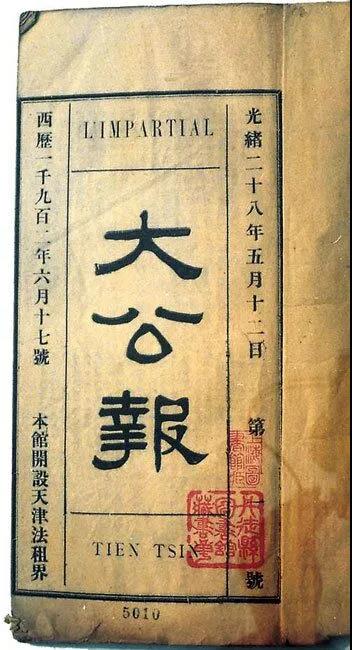 光緒二十八年五月十二日 第 號
L'IMPARTIAL
大公報
TIEN TSIN
西歷一千九百二年六月十七號 本館開設天津法租界
5010